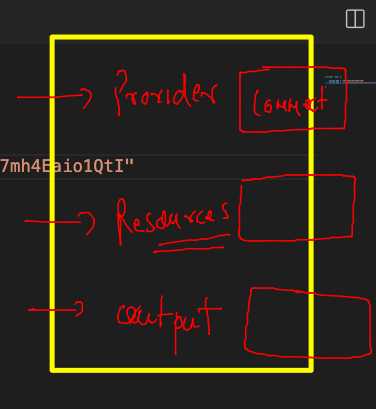 Provider Connect
7mh4Eaio1QtI"
Resources
output